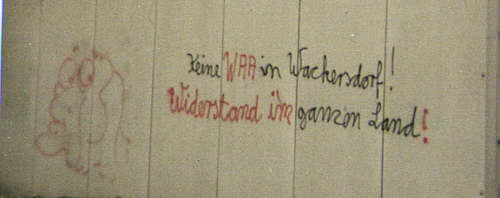 Keine WAA in Wackersdorf!
Widerstand im ganzen Land!